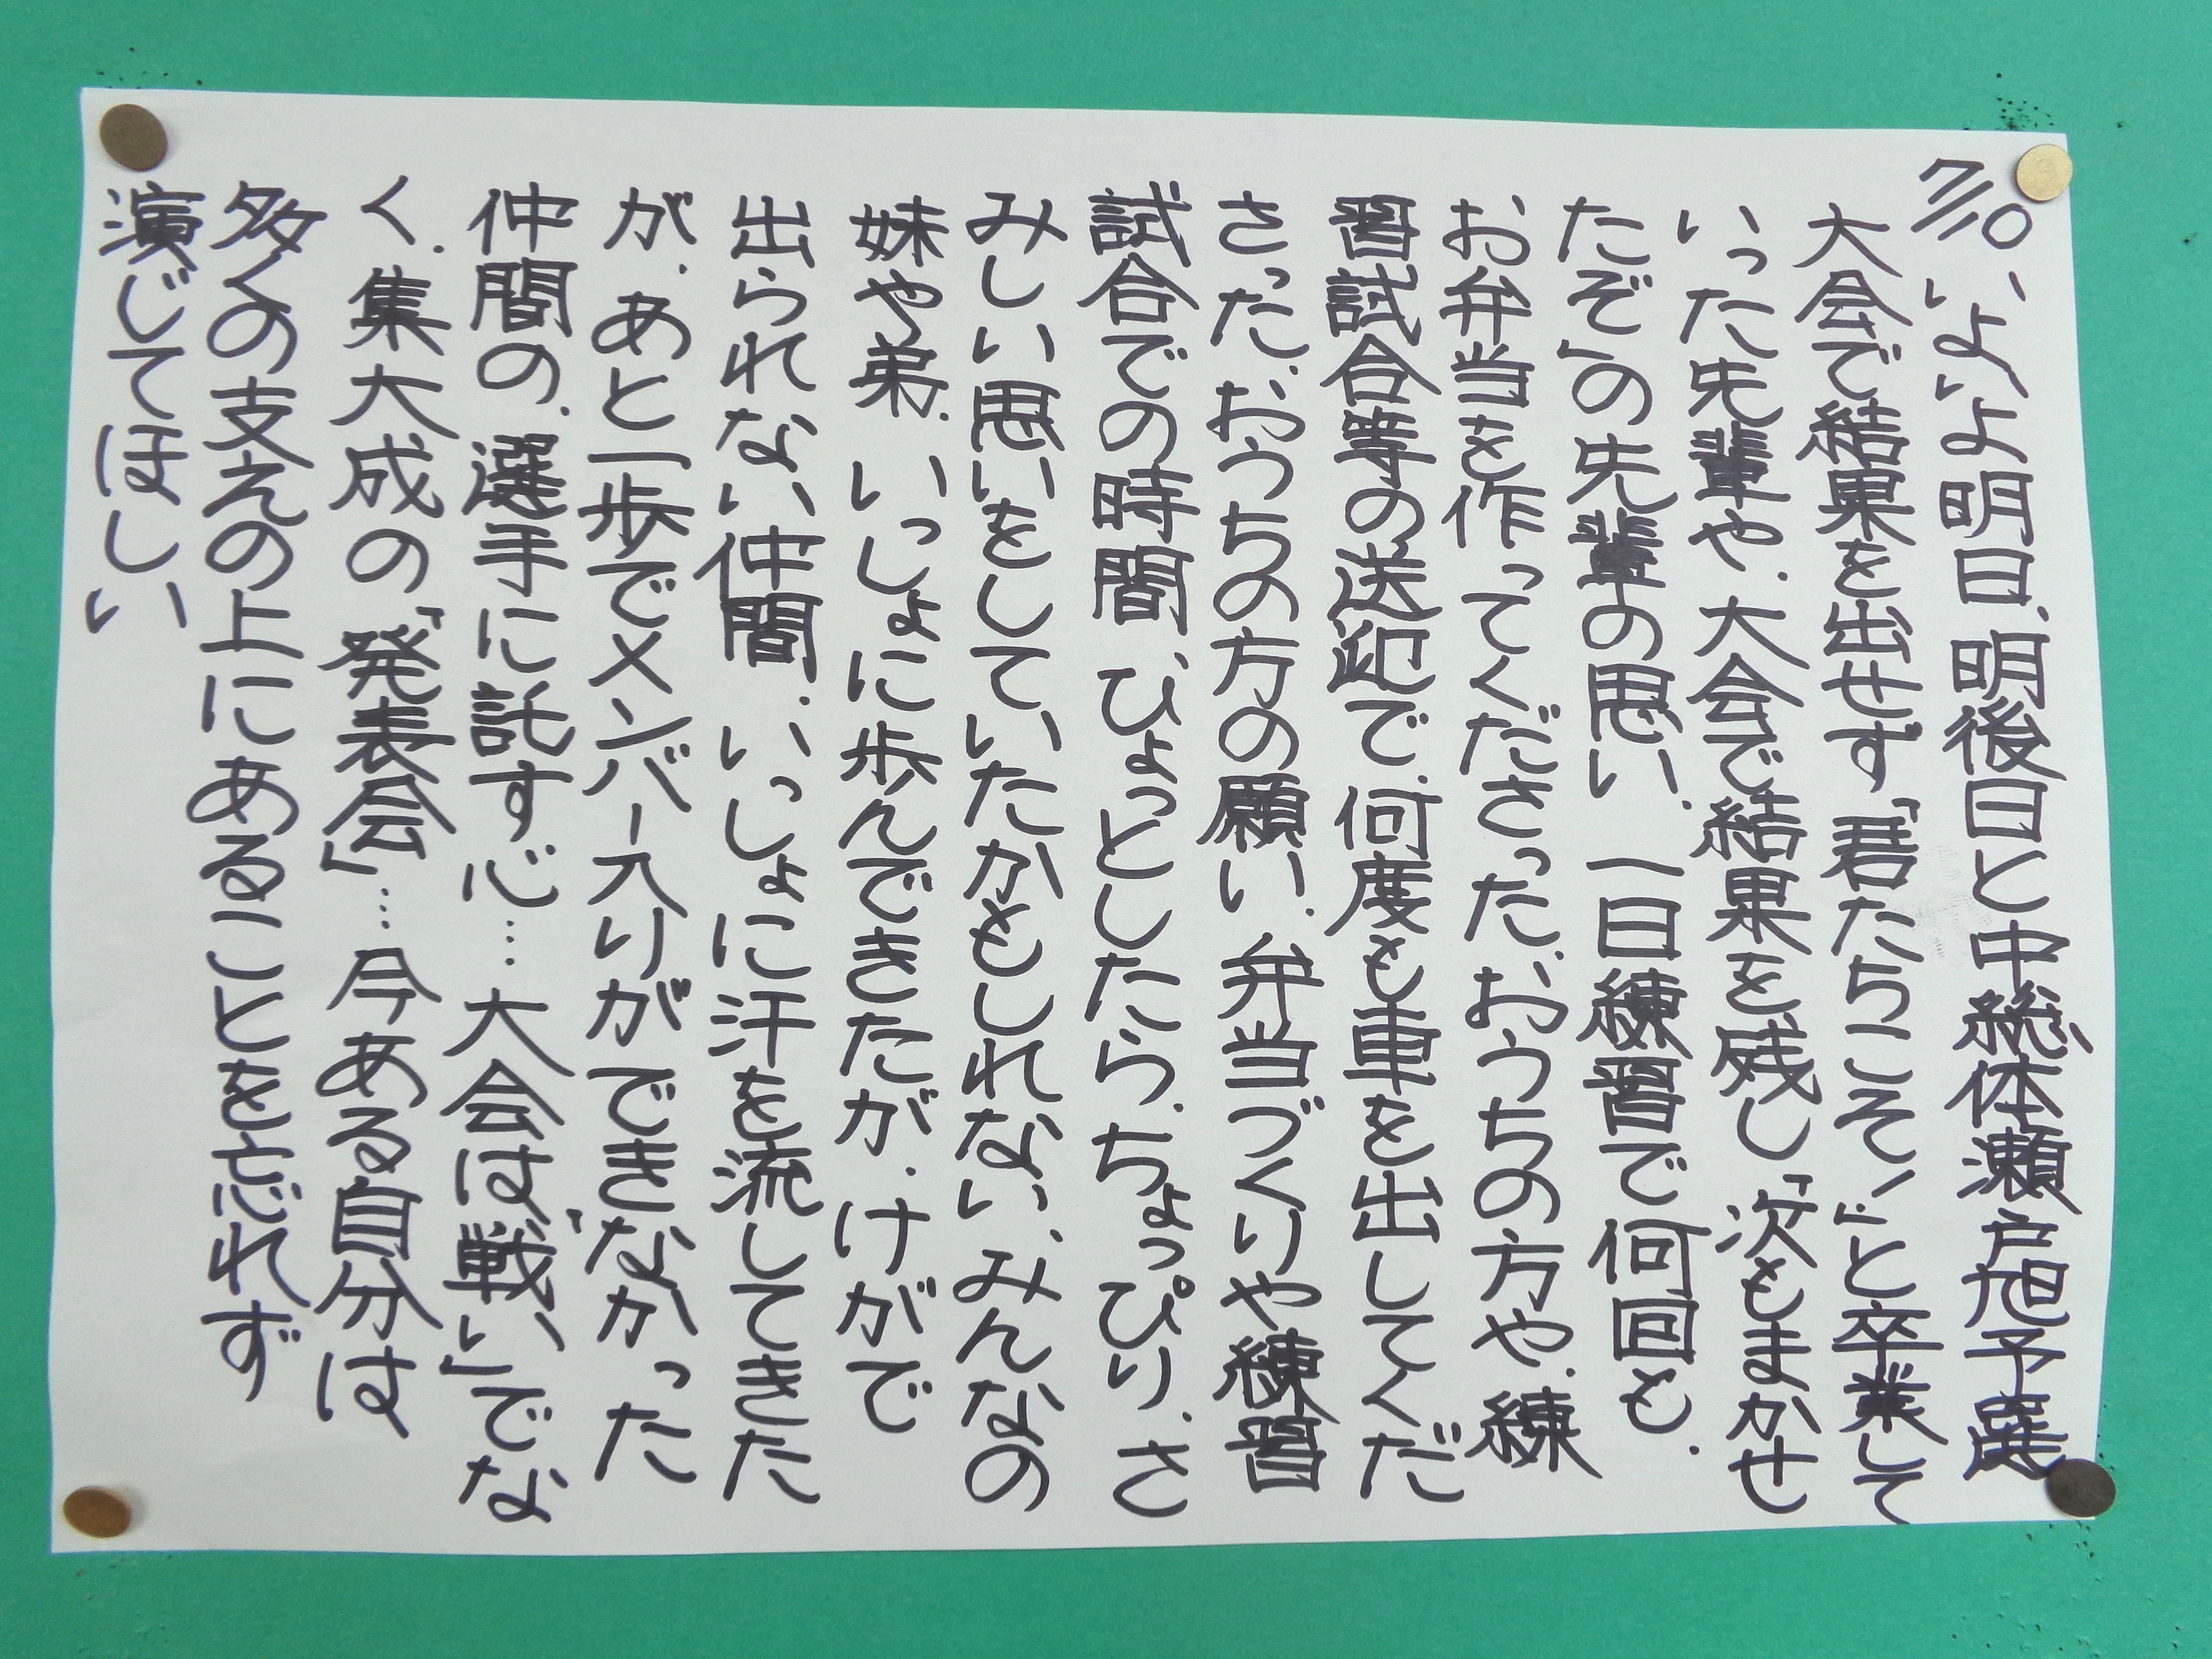 7/10 いよいよ明日、明後日と中総体瀬戸旭予選
大会で結果を出せず「君たちこそ!」と卒業して
いった先輩や、大会で結果を残し「次もまかせ
たぞ」の先輩の思い、一日練習で何回も、
お弁当を作ってくださった、おうちの方や、練
習試合等の送迎で、何度も車を出してくだ
さった、おうちの方の願い、弁当づくりや練習
試合での時間、ひょっとしたら、ちょっぴり、さ
みしい思いをしていたかもしれない、みんなの
妹や弟、いっしょに歩んできたが、けがで
出られない仲間、いっしょに汗を流してきた
が、あと一歩でメンバー入りができなかった
仲間の、選手に託す心…大会は「戦い」でな
く、集大成の「発表会」…今ある自分は
多くの支えの上にあることを忘れず
演じてほしい